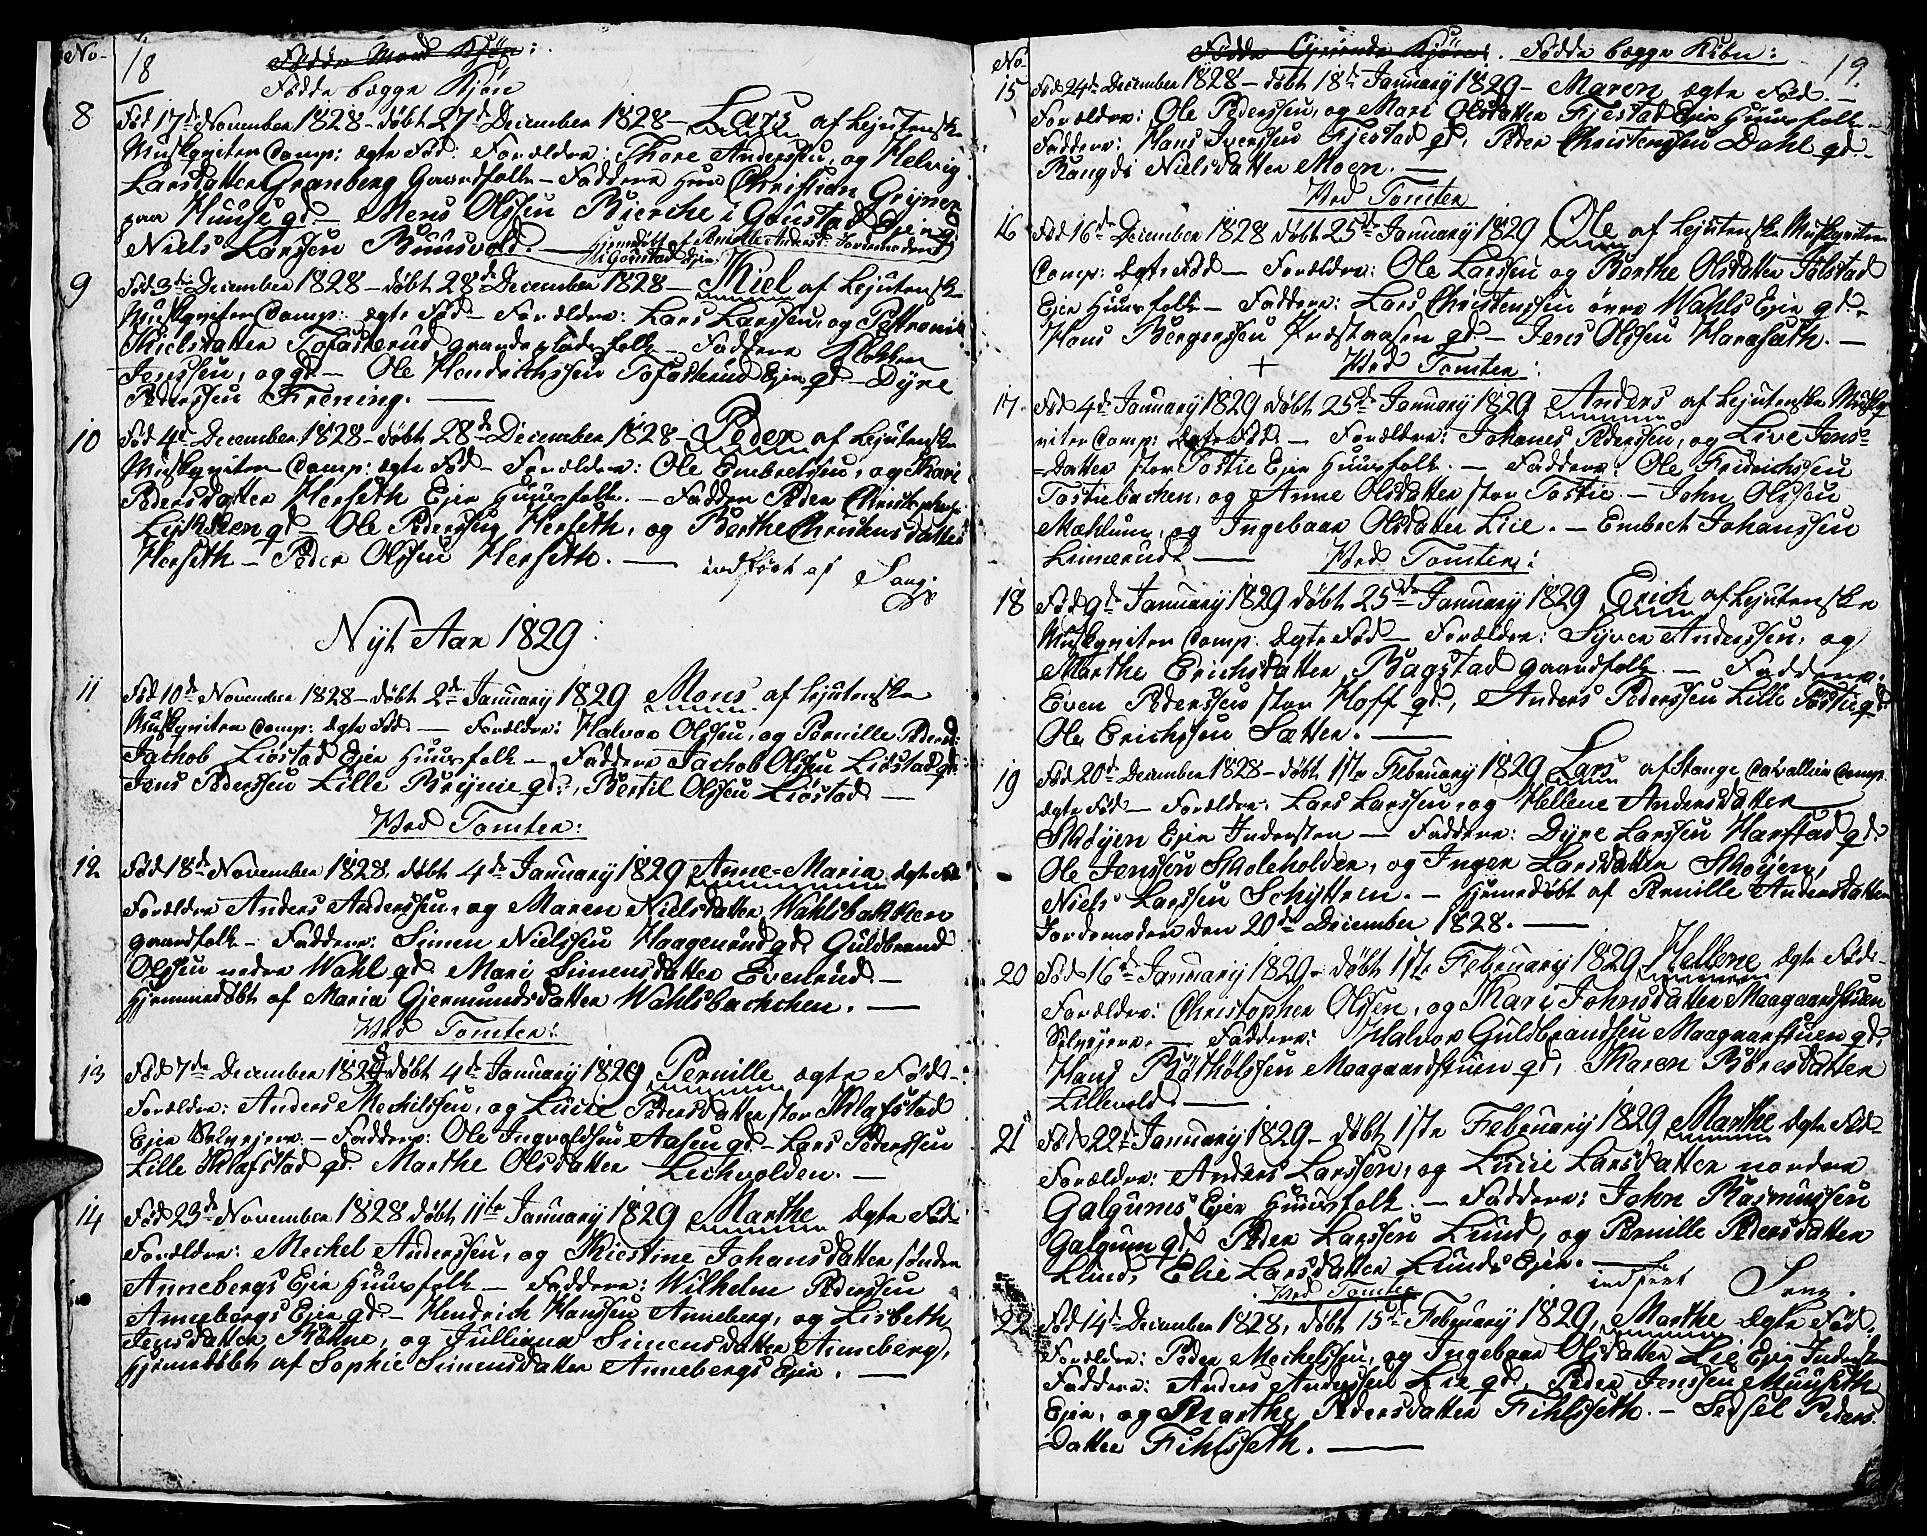 No
18
Fødde Mand Kjøn:
Fødde begge Kjøn
8
Fød 17de November 1828 – døbt 27de December 1828 – Lars af Lejutenske
Musqviter Comp: ægte Fød: Forældre: Thore Anderssen, og Helvig
Larsdatter Granberg Gaardfolk – Faddere Herr Christian Grijner
paa Huuse gd. – Mons Olssen Bierche i Goustad Ejer gd
Niels Larssen Bunsvold. – Hjemdøbt af Pernille Andersd: Jordemoder
i Goustad Ejer
9
Fød 3de December 1828 – døbt 28de December 1828 – Kiel af Lejutenske
Musqviter Comp: ægte Fød – Forældre: Lars Larssen, og Pettronille
Kielsdatter Tofasterud gaardepladsfolk – Faddere Klokker
Jenssen, og gd. – Ole Hendrichssen Tofasterud Ejer gd – Dyre
Pederssen Frening. –
10
Fød 4de December 1828 – døbt 28de December 1828 – Peder af Lejutenske
Musqviter Comp: ægte Fød – Forældre: Ole Embretssen, og Kari
Pedersdatter Herseth Ejer Huusfolk. – Faddere Peder Christophers:
gd – Ole Pederssen Herseth, og Barthe Christensdatter
Herseth – Peder Olssen Herseth. – indført af Sang:
Nyt Aar 1829:
11
Fød 10de November 1828 – døbt 2de January 1829 Mons af Lejutenske
Musqviter Comp: ægte Fød – Forældre: Halvor Olssen, og Pernille Pedersd:
Jachob Liøstad Ejer Huusfolk – Faddere Jachob Olssen Liøstad gd.
Jens Pederssen Lille Brynie gd., Bertil Olssen Liøstad –
Ved Tomter:
12
Fød 18de November 1828, døbt 4de January 1829 Anne-Maria ægte Fød
Forældre Anders Anderssen, og Maren Nielsdatter Wahlsbakken
gaardfolk – Faddere: Simen Nielssen Haagenrud gd. Guldbrand
Olssen nedre Wahl gd. Mari Simensdatter Evenrud –
Hjemmedøbt af Maria Gjermundsdatter Wahlsbachchen. –
Ved Tomter:
13
Fød 7de December 1828 døbt 4de January 1829 Pernille ægte Fød –
Forældre: Anders Mechilssen, og Lucie Pedersdatter stor Klafstad
Ejer Selvejere. – Faddere: Ole Ingvoldsen Aasen gd – Lars Pederssen
Lille Klafstad gd. Marthe Olsdatter Lichvolden. –
14
Fød 23de November 1828 døbt 11te January 1829 Marthe ægte Fød
Forældre: Mechel Anderssen, og Kiestine Johansdatter søndre
Annebergs Ejer Huusfolk – Faddere: Wilhelm Pederssen
Annebergs Ejer gd – Hendrich Hanssen Anneberg, og Lisbeth
Jensdatter Røhne, og Julliana Simensdatter Anneberg,
Hjemedøbt af Sophie Simensdatter Annebergs Ejer. –
No
Fødde Qvinde Kjøn: Fødde begge Kiøn:
19.
15
Fød 24de December 1828 – døbt 18de January 1829 – Maren ægte Fød –
Forældre: Ole Pederssen, og Mari Olsdatter Fjestad Ejer Huusfolk –
Faddere: Hans Iverssen Fjestad gd. Peder Christenssen Dahl gd. –
Rangdi Nielsdatter Moen. –
Ved Tomter
16
Fød 16de December 1828 døbt 25de January 1829 Ole af Lejutenske Musqviter
Comp: ægte Fød – Forældre: Ole Larssen og Barthe Olsdatter Tolstad
Ejer Huusfolk – Faddere: Lars Christenssen øvre Wahls Ejer gd –
Hans Bergerssen Præstaasen gd – Jens Olssen Haraseth. –
+ Ved Tomter:
17.
Fød 4de January 1829 døbt 25de January 1829 Anders af Lejutenske Musq
viter Comp: ægte Fød. – Forældre: Johanes Pederssen, og Live Jens-
datter stor Tostie Ejer Huusfolk. – Faddere: Ole Fridrichssen
Tostiebachen, og Anne Olsdatter stor Tostie. – John Olssen
Mæhlum, og Ingebaar Olsdatter Lie. – Embret Johanssen
Limerud. – Ved Tomter:
18
Fød 9de January 1829 døbt 25de January 1829 Erich af Lejutenske
Musqviter Comp: ægte Fød – Forældre: Syver Anderssen, og
Marthe Erichsdatter Bagstad gaardfolk. – Faddere:
Even Pederssen stor Hoff gd., Anders Pederssen Lille Tostie gd
Ole Erichssen Sætter. –
19
Fød 20de December 1828 – døbt 1ste February 1829 Lars af Stange Cavallerie Comp:
ægte Fød – Forældre: Lars Larssen, og Hellene Andersdatter
Skøyen Ejer Inderster – Faddere: Dyre Larssen Harstad gd.
Ole Jenssen Skoleholder, og Inger Larsdatter Skøyen,
Niels Larssen Schytten. – Hjemedøbt af Pernille Andersdatter
Jordemoder den 20de December 1828. –
20
Fød 16de January 1829 – døbt 1ste February 1829 Hellene ægte Fød –
Forældre: Christopher Olsen, og Kari Johnsdatter Maagaardstuen
Selvejere. – Faddere: Halvor Guldbrandsen Maagaarstuen gd.
Hans Maagaardstuen gd, Karen Børresdatter
Lillevold. –
21
Fød 22de January 1829 – døbt 1ste February 1829 Marthe ægte Fød –
Forældre: Anders Larssen, og Lucie Larsdatter nordre
Galgums Ejer Huusfolk. – Faddere: John Rasmussen
Galgum gd, Peder Larssen Lund, og Pernille Pedersdatter
Lund, Elie Larsdatter Lunds Ejer. –
indført Sang.
Ved Tomter
22
Fød 14de December 1828, døbt 15de February 1829, Marthe ægte Fød.
Forældre: Peder Mechelssen, og Ingebaar Olsdatter Lie Ejer Inderster
Faddere: Anders Anderssen Lie gd. Peder Jenssen Munseth
Ejer, og Marthe Pedersdatter Fihlseth. – Sedsel Peders
datter Fihlseth. –